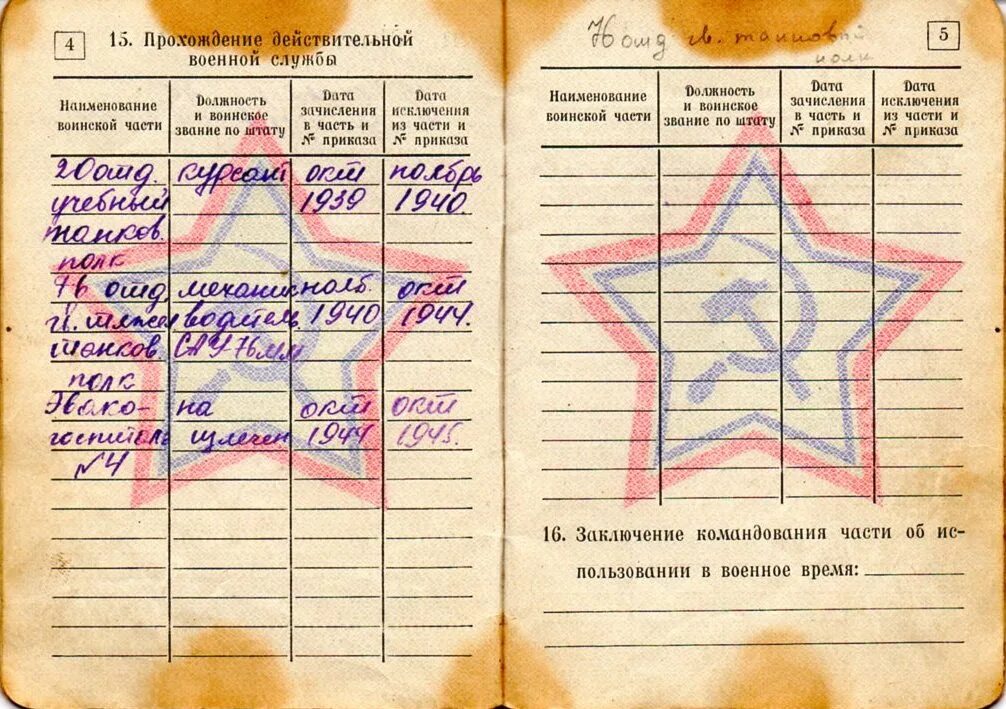 4
15. Прохождение действительной
военной службы
Наименование
воинской части
Должность
и воинское
звание по штату
Дата
зачисления
в часть и
№ приказа
Дата
исключения
из части и
№ приказа
20 отд. курсант окт ноябрь
учебный 1939 1940
танков.
полк
отд. механик нояб окт
водитель 1940 1944.
танков САУ 76 мм
полк
Эвако- на окт окт
госпиталь излечен 1944 1945.
№4
отд гв. танковый
полк
5
Наименование
воинской части
Должность
и воинское
звание по штату
Дата
зачисления
в часть и
№ приказа
Дата
исключения
из части и
№ приказа
16. Заключение командования части об ис-
пользовании в военное время: